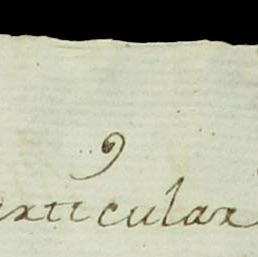 9
articular